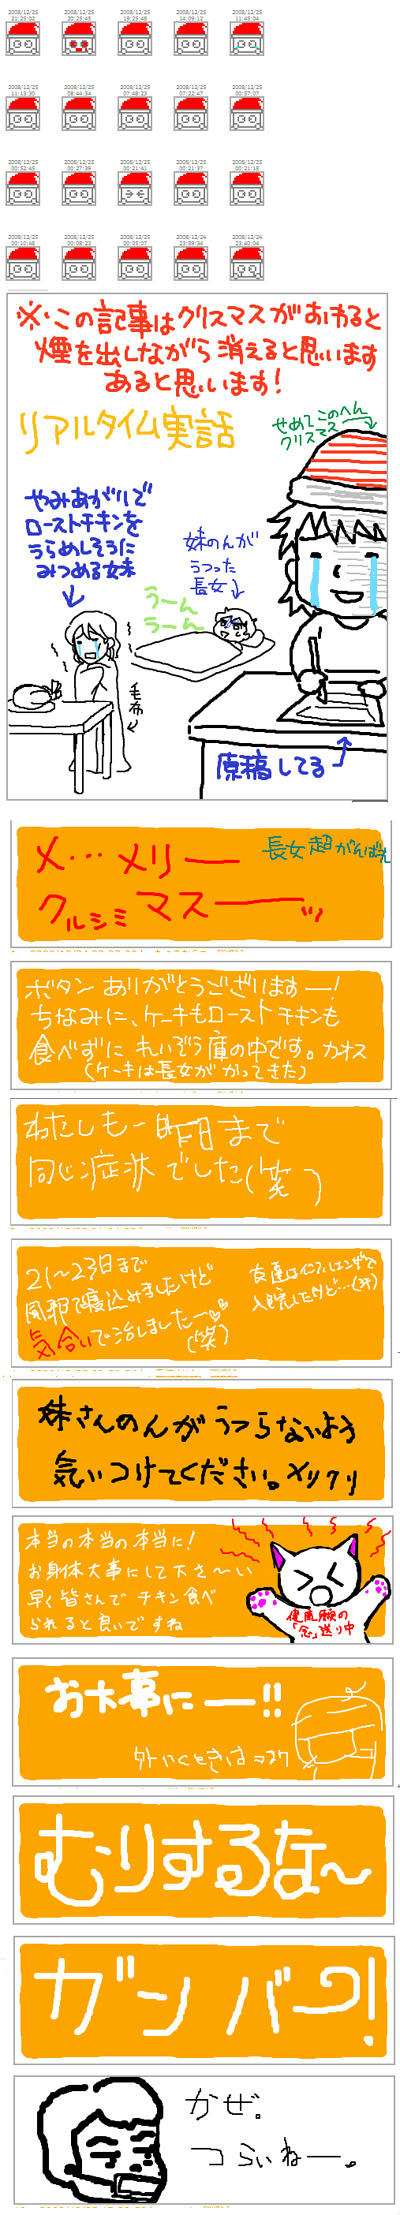 2008/12/25 2008/12/25 2008/12/25 2008/12/25 2008/12/25
21:25:02 20:25:45 19:25:48 14:09:12 11:45:04
2008/12/25 2008/12/25 2008/12/25 2008/12/25 2008/12/25
11:13:30 08:44:54 07:48:23 07:22:47 00:57:07
2008/12/25 2008/12/25 2008/12/25 2008/12/25 2008/12/25
00:52:45 00:27:39 00:21:41 00:21:37 00:21:18
2008/12/25 2008/12/25 2008/12/25 2008/12/24 2008/12/24
00:10:48 00:08:23 00:05:07 23:59:34 23:40:04
※この記事はクリスマスがおわると
煙を出しながら消えると思います
あると思います!
リアルタイム実話
せめてこのへん
クリスマス
やみあがりで
ローストチキンを
うらめしそうに
みつめる妹
妹のんが
うつった
長女
うーん
うーん
毛布
原稿してる
メ…メリー
長女超がんばえ
クルシミマスーッ
ボタンありがとうございますー!
ちなみに、ケーキもローストチキンも
食べずにれいぞう庫の中です。カオス
(ケーキは長女がかってきた)
わたしも一昨日まで
同じ症状でした(笑)
21~23日まで
風邪で寝込みましたけど
気合いで治しましたー
(笑)
友達はインフルエンザで
入院したけど…(汗)
妹さんのんがうつらないよう
気いつけてください。メリクリ
本当の本当の本当に!
お身体大事にして下さ~い
早く皆さんでチキン食べ
られると良いですね
健康願の
「念」送り中
お大事にー!!
外いくときはマスク
むりすんな~
ガンバーク!
かぜ。
つらいねー。